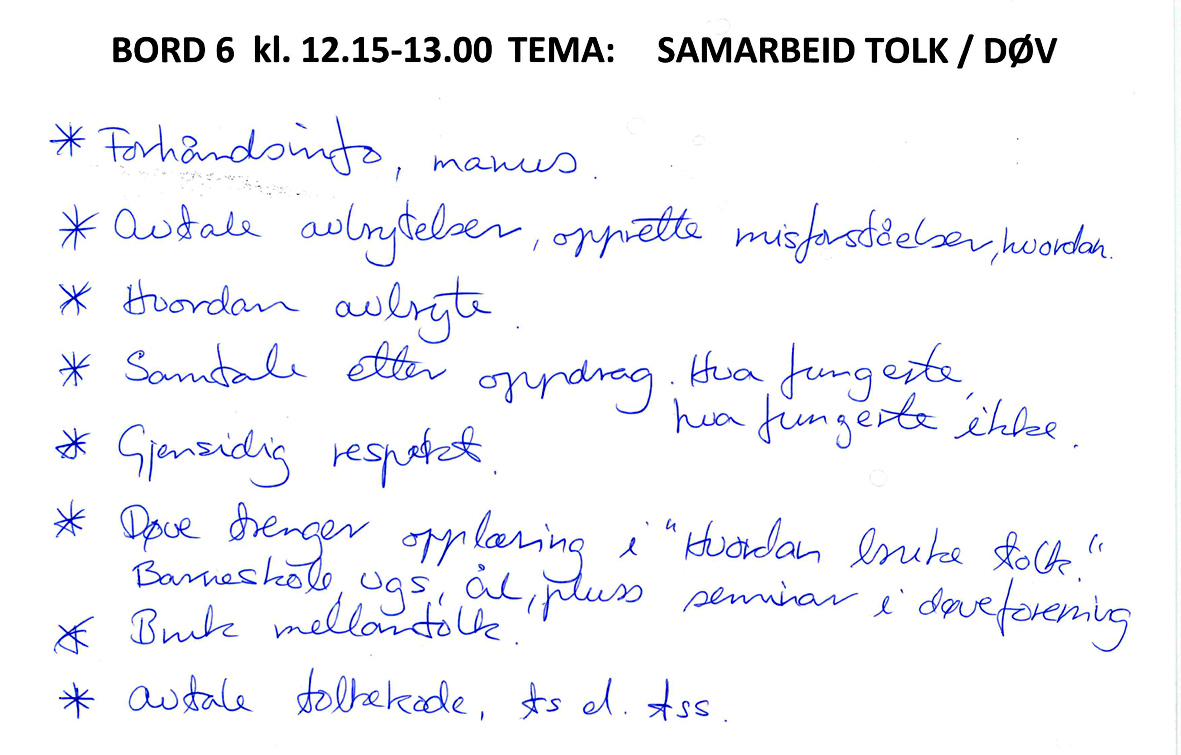 BORD 6 kl. 12.15-13.00 TEMA: SAMARBEID TOLK / DØV
* Forhåndsinfo, manus.
* Avtale avbrytelser, opprette misforståelser, hvordan.
* Hvordan avbryte.
* Samtale etter oppdrag. Hva fungerte,
hva fungerte ikke.
* Gjensidig respekt.
* Døve trenger opplæring i "Hvordan bruke tolk."
Barneskole, vgs, ål, pluss seminar i døveforening
* Bruk mellomtolk.
* Avtale tolkekode, ts el. tss.